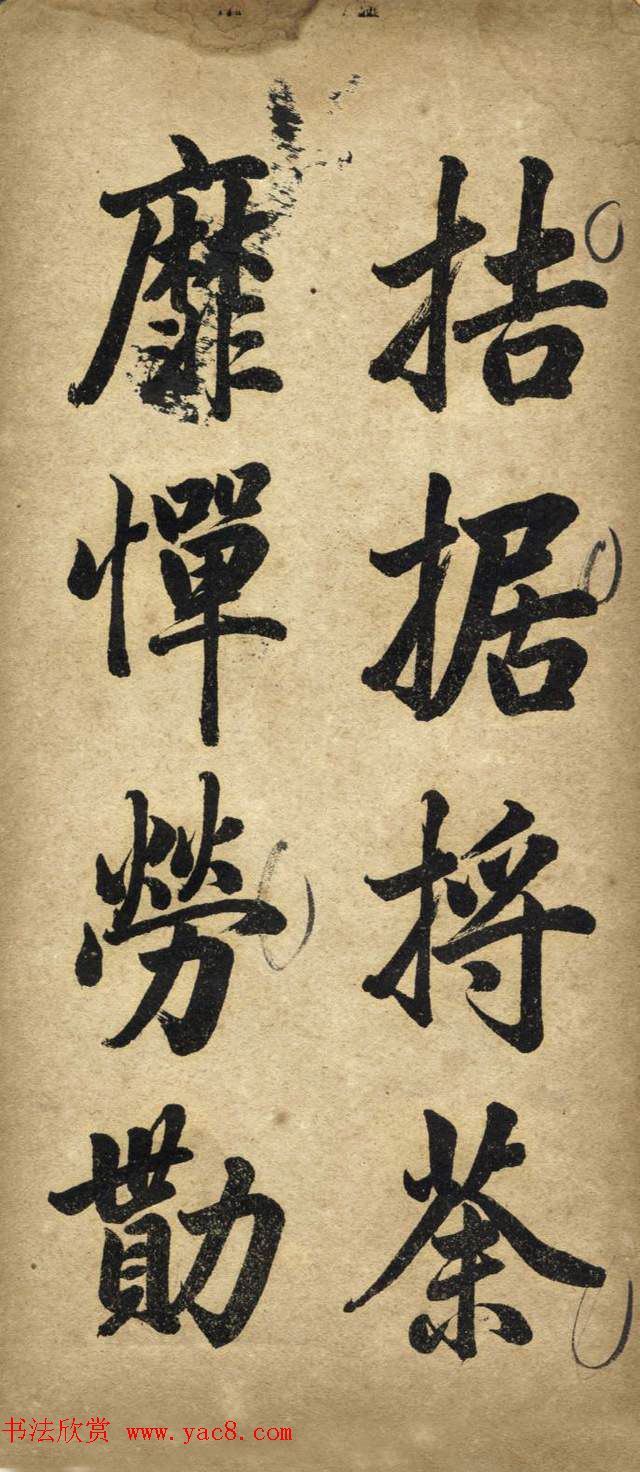 拮据捋荼
靡憚勞勩
书法欣赏 www.yac8.com